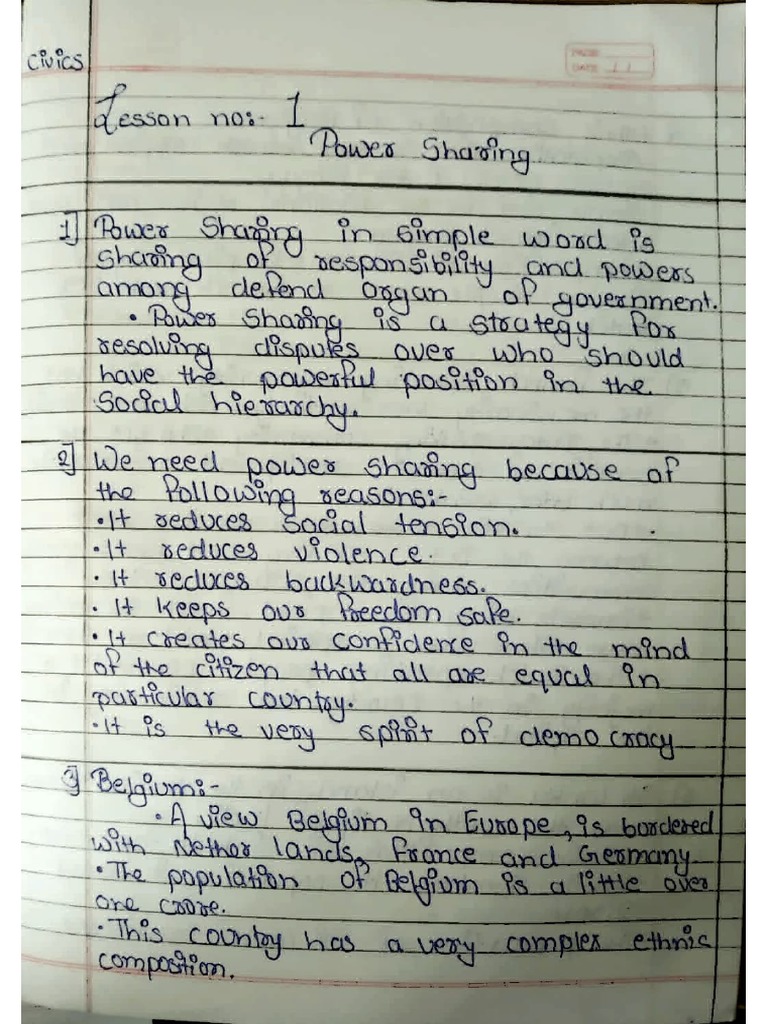 Civics
PAGE
DATE
Lesson no:- 1
Power Sharing
1] Power Sharing in simple word is
sharing of responsibility and powers
among defend organ of government.
• Power Sharing is a strategy for
resolving disputes over who should
have the powerful position in the
Social hierarchy.
2] We need power sharing because of
the following reasons:-
• It reduces social tension.
• It reduces violence.
• It reduces backwardness.
• It keeps our freedom safe.
• It creates our confidence in the mind
of the citizen that all are equal in
particular country.
• It is the very spirit of democracy
3] Belgium:-
• A view Belgium in Europe, is bordered
with Nether lands, France and Germany
• The population of Belgium is a little over
one crore.
• This country has a very complex ethnic
compostion.